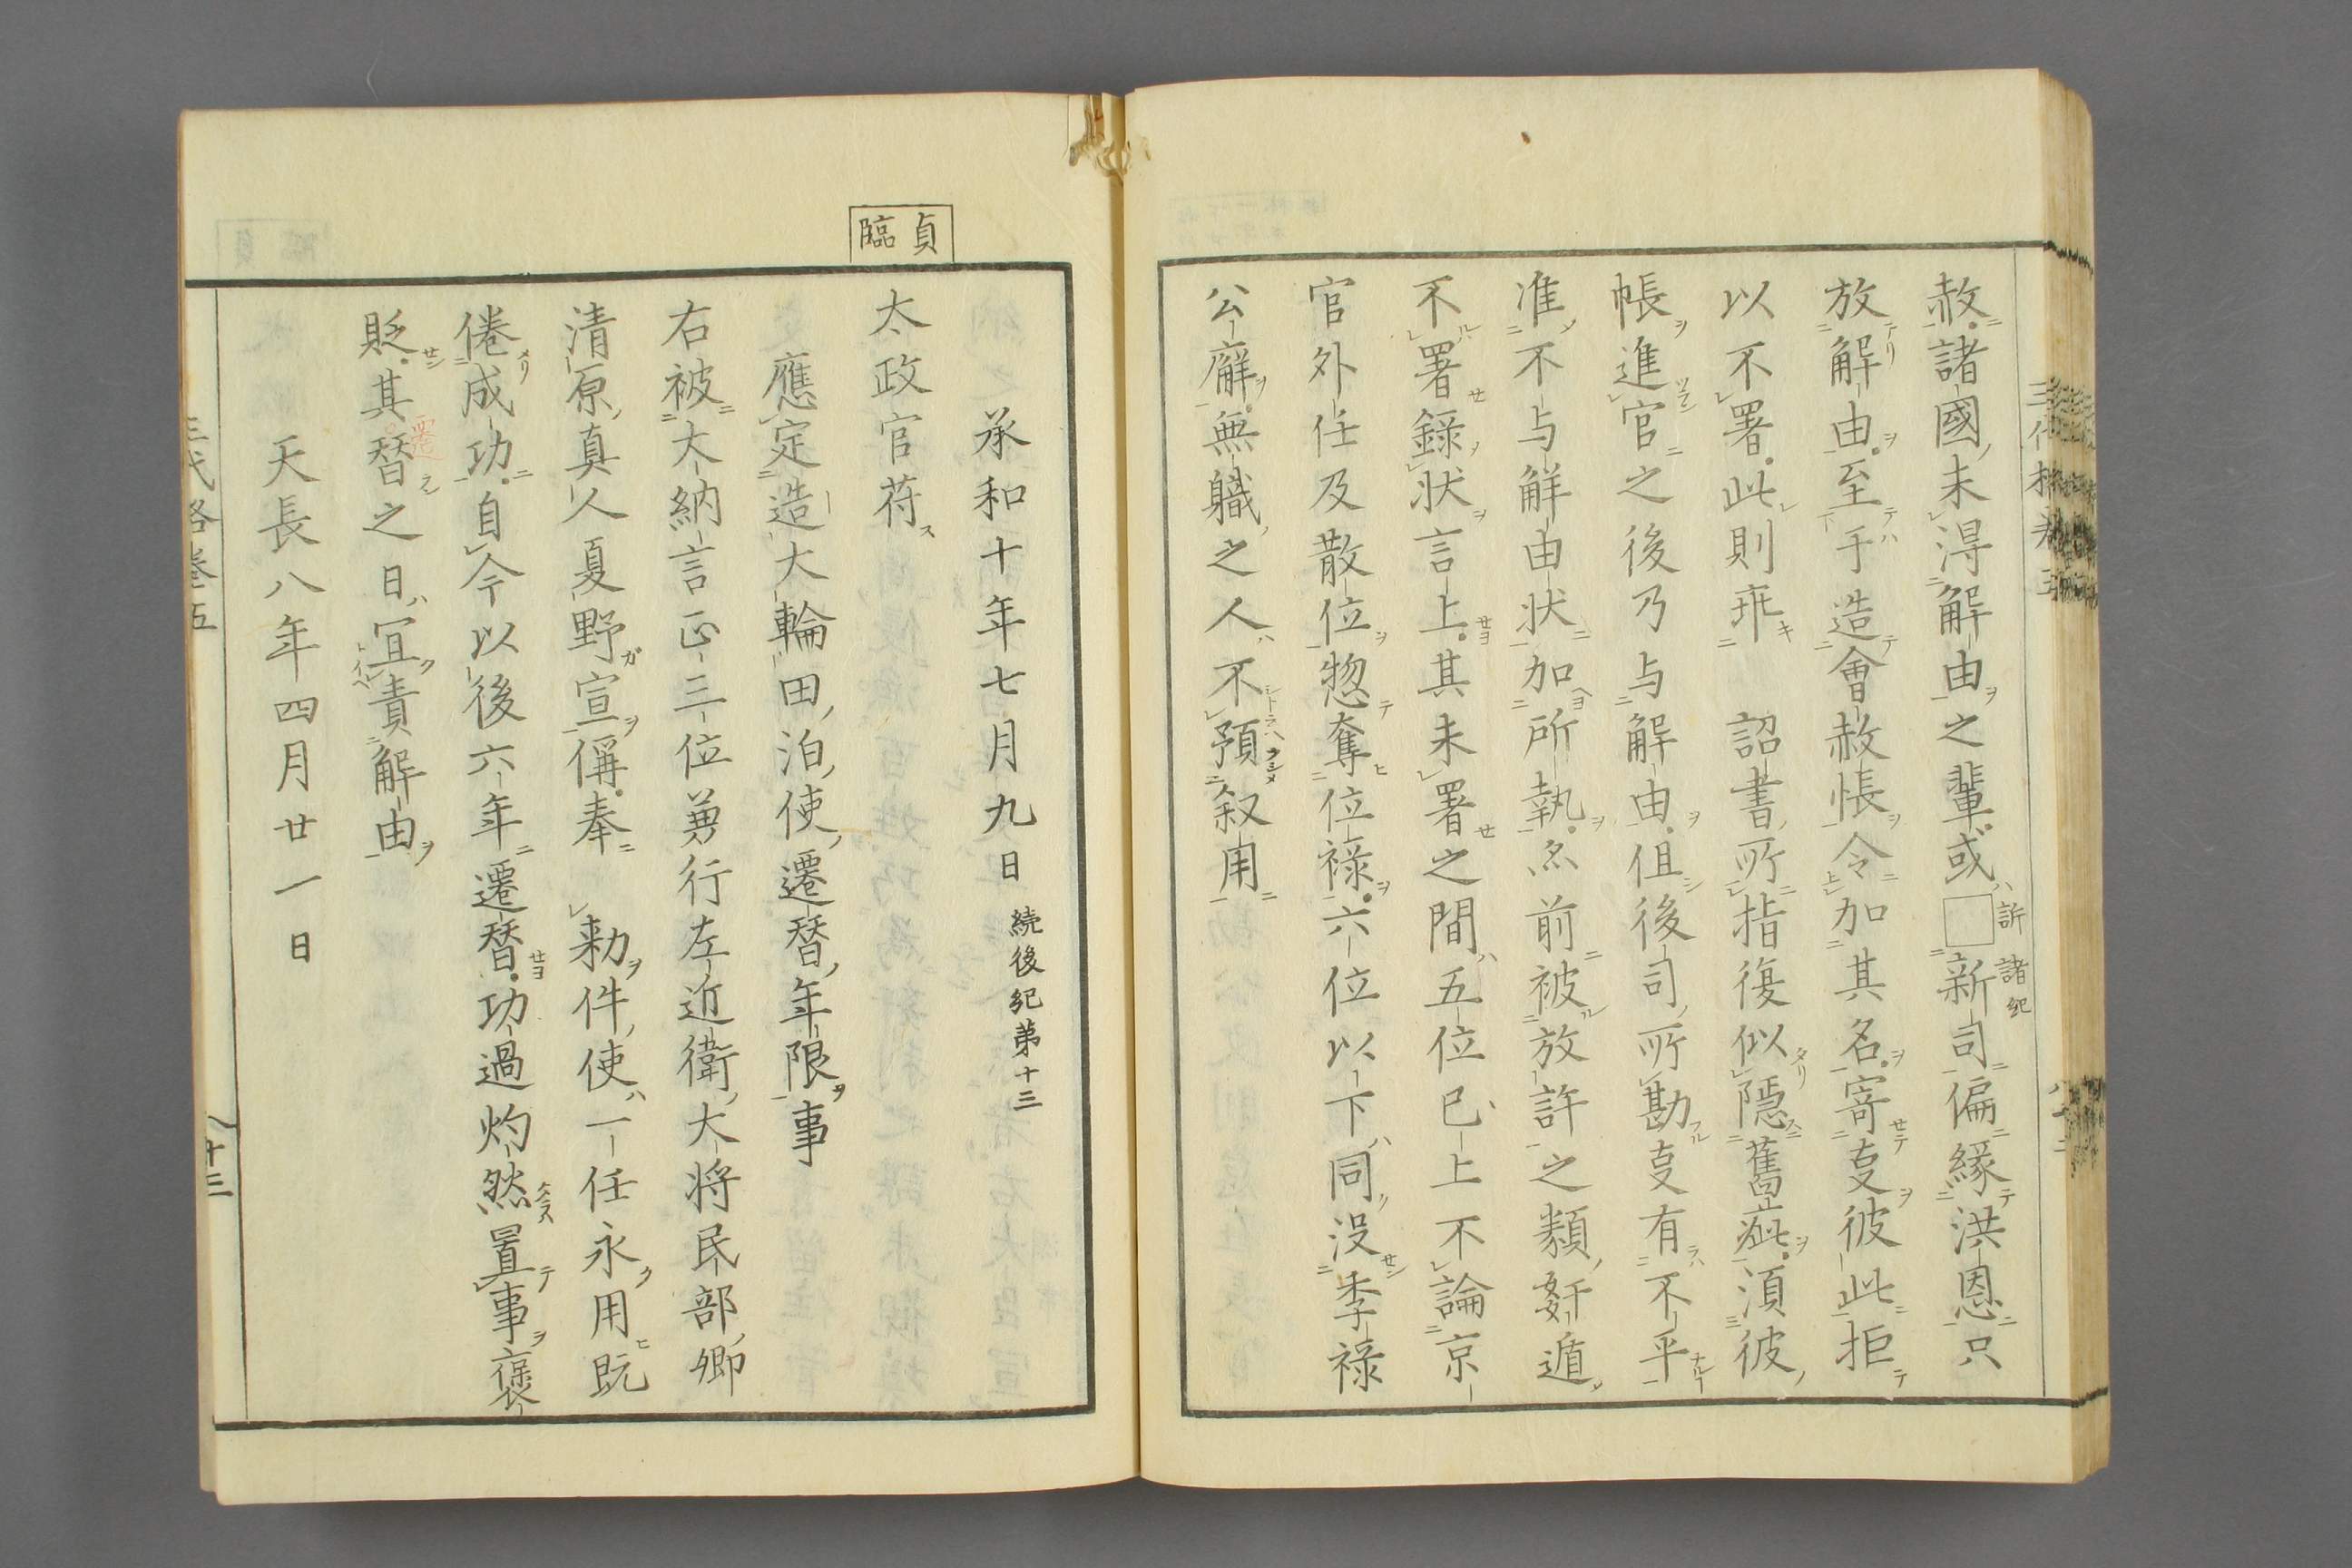 赦諸國未得解由之輩或□新司偏縁洪恩只
訴 諸紀
放解由至于造會赦帳令加其名寄夏彼此拒
以不署此則乖 詔書所指復似隱舊疵湏彼
帳進官之後乃与解由但後司所勘夏有不平
准不与解由状加所執亦前被放許之類姧遁
不署録状言上其未署之間五位已上不論京
官外任及散位惣奪位禄六位以下同没季禄
公廨無職之人不預叙用
承和十年七月九日 続後紀第十三
貞臨
太政官符
應定造大輪田泊使遷替年限事
右被大納言正三位兼行左近衛大将民部卿
清原真人夏野宣偁奉 勅件使一任永用既
倦成功自今以後六年遷替功過灼然置事褒
貶其替之日宜責解由
遷
天長八年四月廿一日
三代格巻五
八十三